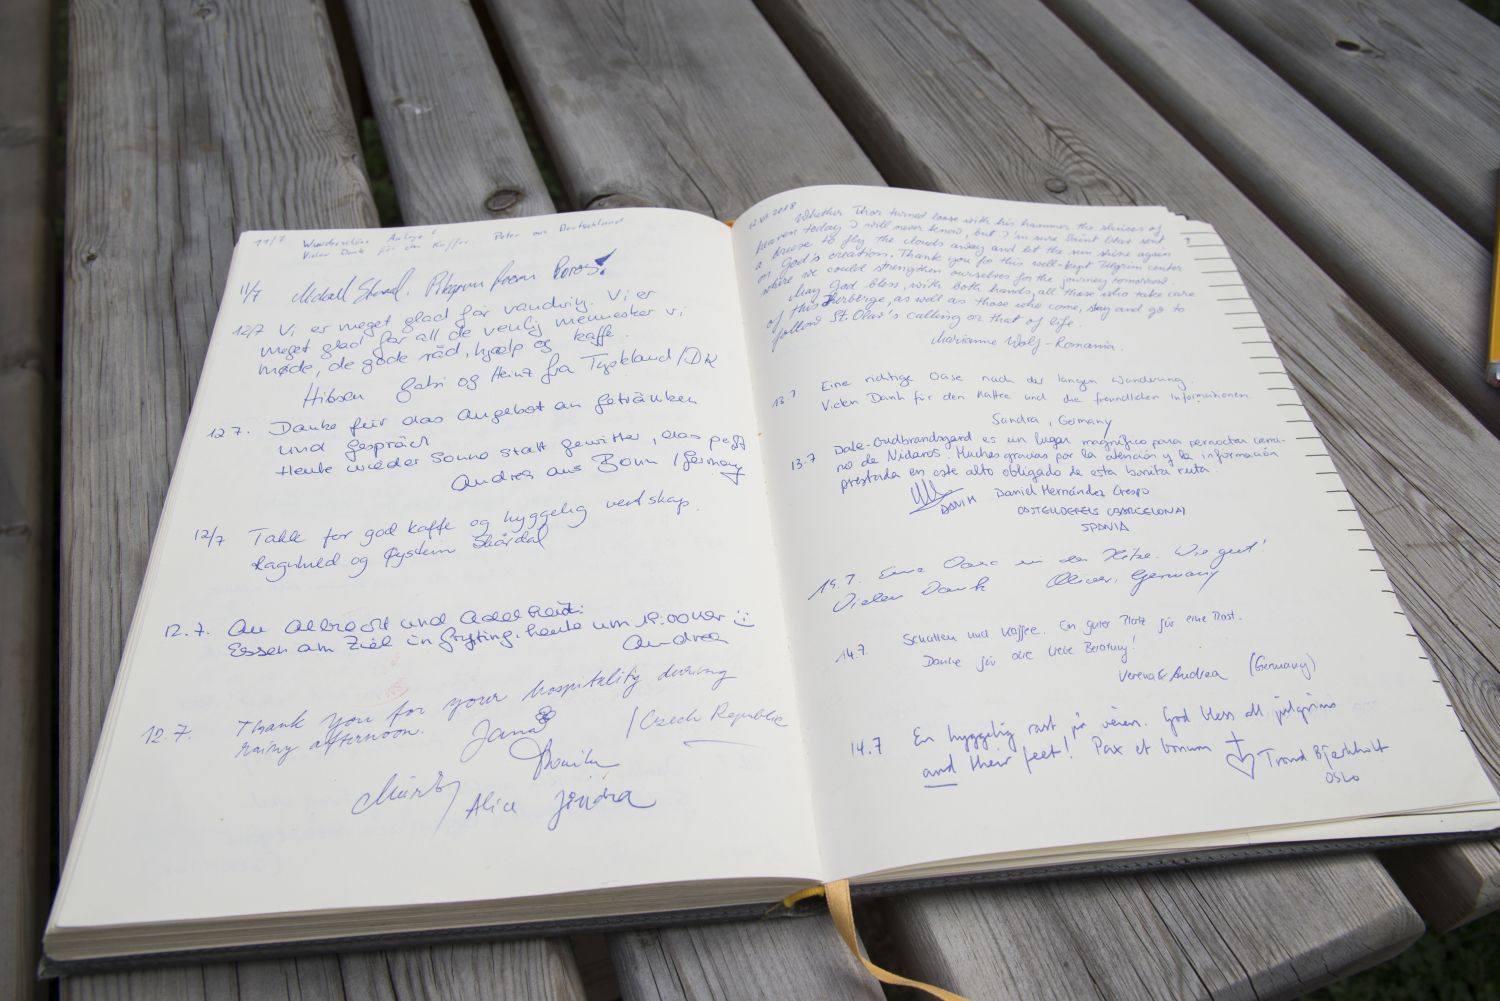 11/7 Wunderschöne Anlage!
Vielen Dank für den Kaffee. Peter aus Deutschland
11/7
12/7 Vi er meget glad for vandring. Vi er
meget glad for all de venlig mennesker vi
møde, de gode råd, hjælp og kaffe.
Hilsen Gabi og Heinz fra Tyskland/DK
12.7. Danke für das Angebot an Getränken
und Gespräch
Heute wieder Sonne statt Gewitter, das paßt
Andrea aus Bonn/Germany
12/7 Takk for god kaffe og hyggelig vertskap.
Ragnhild og Øystein Skårdal
12.7. An Albrecht und Adelheid:
Essen am Ziel in Grytting. heute um 19:00 Uhr
Andrea
12.7. Thank you for your hospitality during
rainy afternoon. Jana /Czech Republic
Monika
Alice Jindra
12.VII.2018
Whether Thor turned loose with his hammer the sluices of
heaven today I will never know, but I'm sure Saint Olav sent
a breeze to fly the clouds away and let the sun shine again
on God's creation. Thank you for this well-kept Pilgrim center
where we could strengthen ourselves for the journey tomorrow.
May God bless, with both hands, all those who take care
of this Herberge, as well as those who come, stay and go to
follow St. Olav's calling or that of life.
Marianne Wolf - Romania.
13.7 Eine richtige Oase nach der langen Wanderung.
Vielen Dank für den Kaffee und die freundlichen Informationen
Sandra, Germany
13.7 Dale-Gudbrandsgard es un lugar magnífico para pernoctar cami-
no de Nidaros. Muchas gracias por la atención y la información
prestada en este alto obligado de esta bonita ruta.
DANIH Daniel Hernández Crespo
CASTELLDEFELS (BARCELONA)
SPANIA
14.7. Eine Oase in der Hitze. Wie gut!
Vielen Dank Oliver, Germany
14.7. Schatten und Kaffee. Ein guter Platz für eine Rast.
Danke für die liebe Beratung!
Verena & Andrea (Germany)
14.7 En hyggelig rast på veien. God bless all pilgrims
and their feet! Pax et bonum Trond Bjerkholt
OSLO